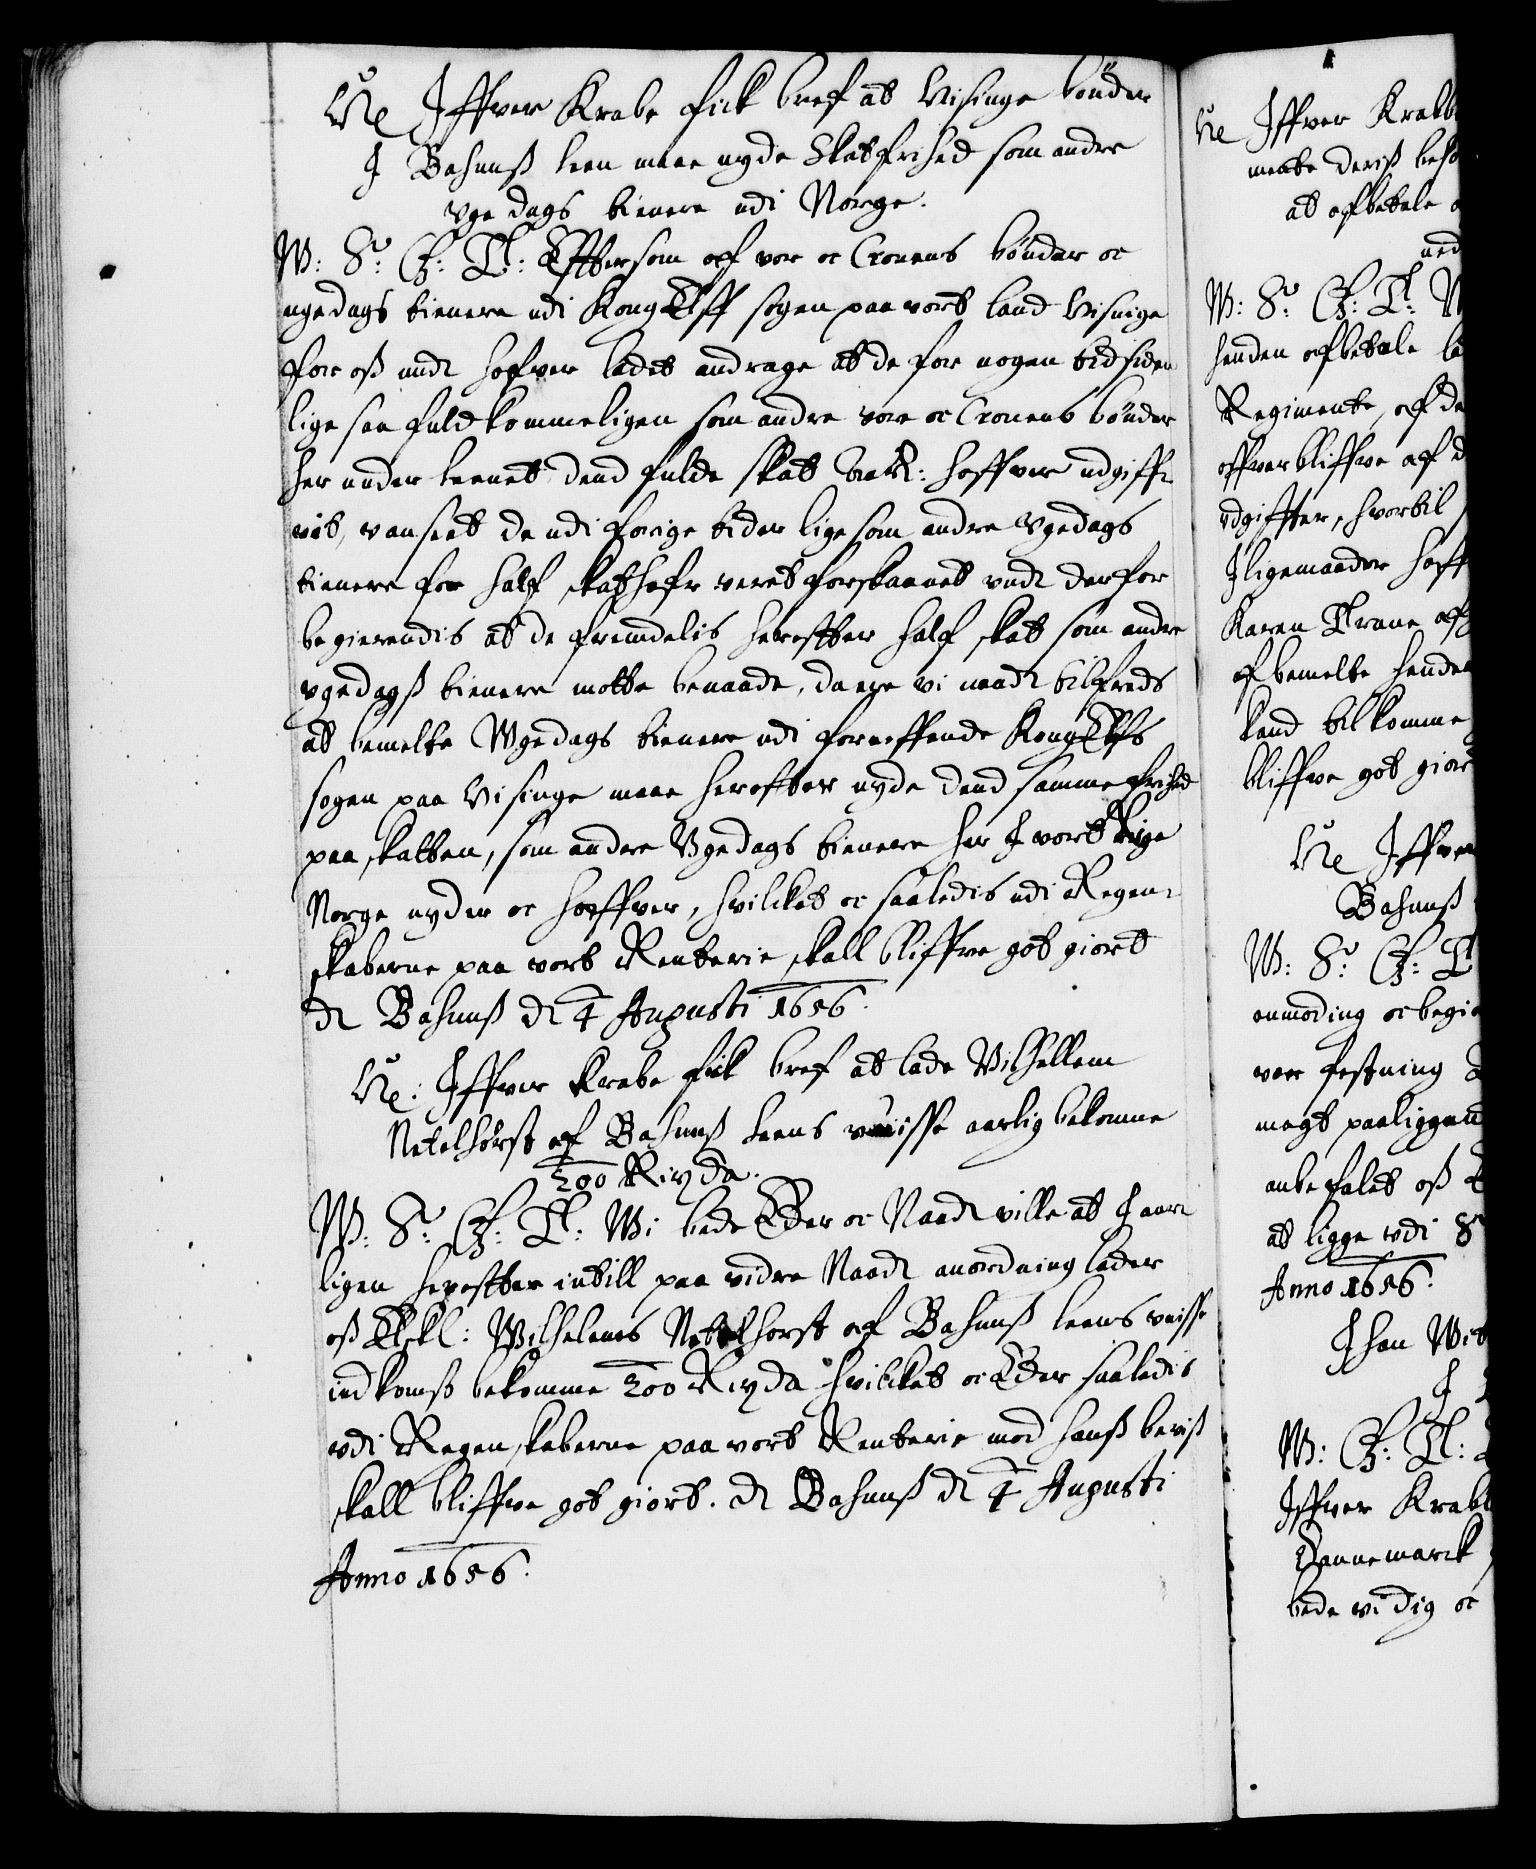 Hr Iffver Krabe fick bref at Visinge bönder
J Bahuuß Leen maae nyde Skatfrihed som andre
Vge dags tienere udi Norge.
W: S: G: T: Efftersom af vor oc Cronens bönder oc
ugedags tienere udi Kong Elff sogen paa vort land Visinge
for oß und: hafver ladet andrage at de for nogen tid siden
lige saa fuldkommeligen som andre vore oc Cronens bönder
her under Leenet dend fulde skat hoffver udgiff-
vit, vanseet de udi forige tider lige som andre Vgedags
tienere for half skat hafr veret forskaanet und: derfor
begierendis at de fremdelis herefftter half skat som andre
vgedagß tienere motte benaade, da ere vi naad: tilfreds
at bemelte Wgedags tienere udi forneffende Kong Elfs
sogen paa Visinge maae herefftter nyde dend samme frihed
paa skatten, som andre Vgedags tienere her J vort Rige
Norge nyder oc hoffver, hvilcket oc saaledis udi Regen-
skaberne paa vort Renterie skall bliffve got giort
d Bahuuß d 4 Augusti 1656.
Hr: Iffver Krabe fick bref at lade Vilhellem
Netelhorst af Bahuuß Leens visse aarlig bekomme
200 Rixda.
W: S: G: T: Wi bede Eder oc Naad: ville at J aar-
ligen herefftter indtill paa vidre Naad: anordning lader
oß Elskl: Wilhelems Nettelhorst af Bahuuß Leens visse
indkomst bekomme 200 Rixda hvilcket oc Eder saaledis
udi Regenskaberne paa vort Renterie mod hanß beviß
skall bliffve got giort. d Bahuuß d 4 Augusti
Anno 1656.
Hr Iffver Krabb
meente deriß
at afbetale
ned
W: S: G: T:
henden afbetale
Regimente, af
offverbliffve af
vdgiffter, hvortil
Jligemaader hoff
Karen Trane
af bemelte hende
kand tilkomme
bliffve got giort
Hr Iffver
Bahuuß
W: S: G: T
anmoding oc begie
vor festning
magt paaliggend
anbefalet oß
at ligge udi
Anno 1656.
Jhan
J
W: G: T:
Iffver Krabb
Dannemarck
bede vi dig oc